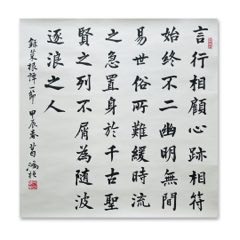 言行相顧心跡相符
始終不二幽明無間
易世俗所難緩時流
之急置身於千古聖
賢之列不屑為隨波
逐浪之人
錄菜根譚一節 甲辰春